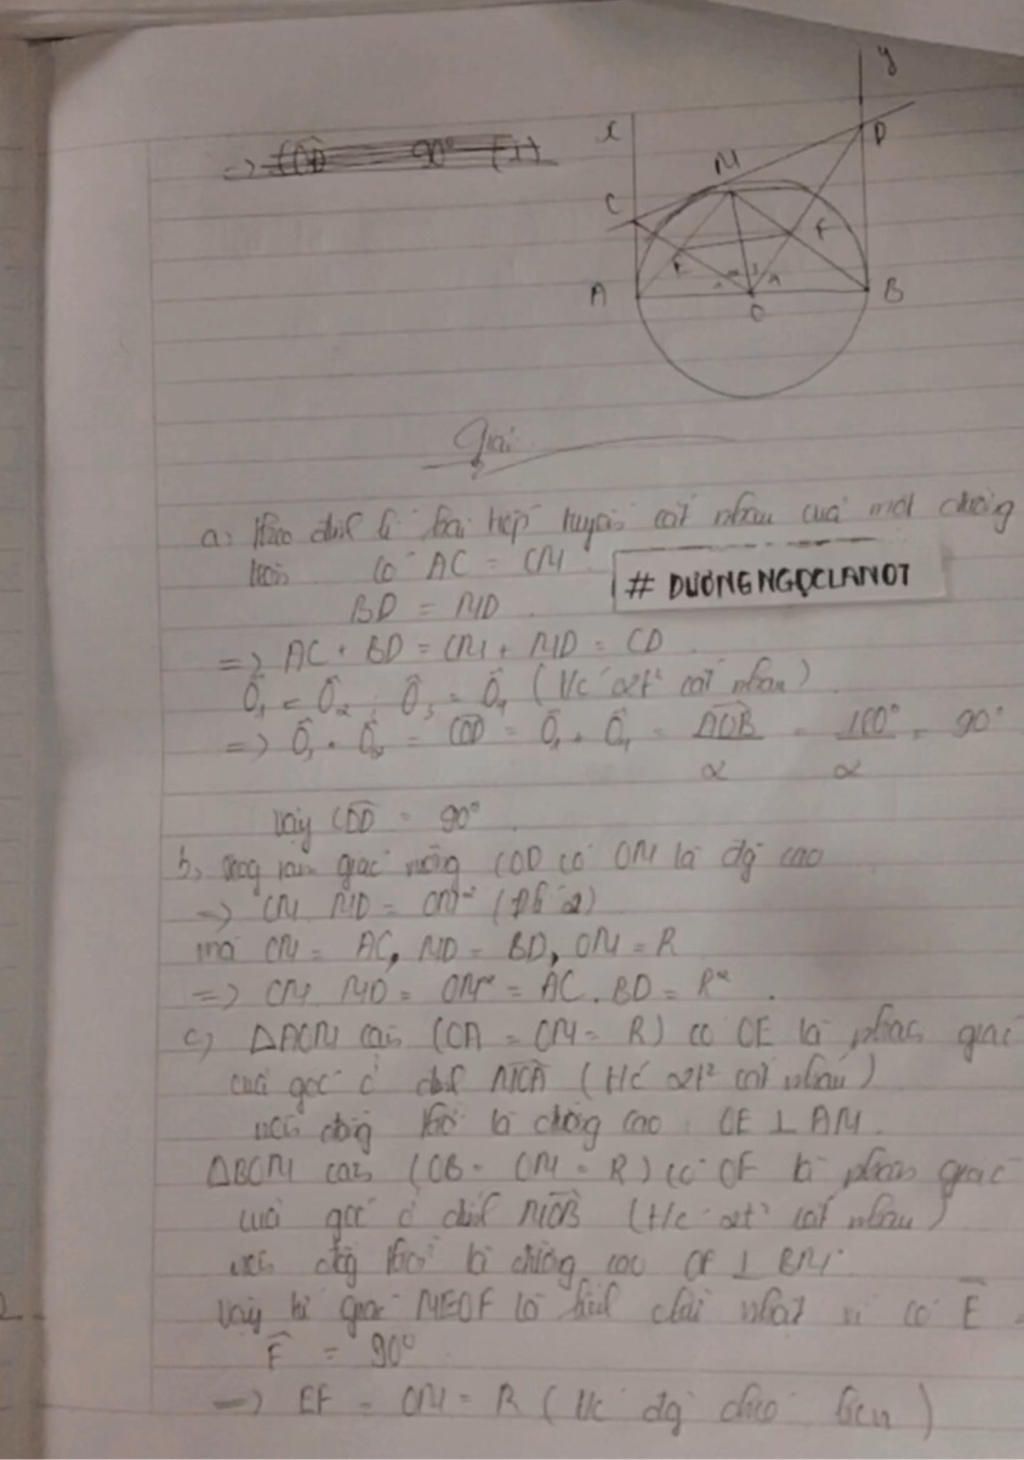 => COD = 90° (1)
x
y
M
D
C
E
F
A
O
B
Giải
a: theo định lí hai tiếp tuyến cắt nhau của một đường
tròn có AC = CM
# DƯƠNGNGỌCLAN07
BD = MD
=> AC + BD = CM + MD = CD
Ô1 = Ô2 ; Ô3 = Ô4 (t/c 2t² cắt nhau)
=> Ô3 + Ô2 = COD = Ô1 + Ô4 = AOB/2 = 180°/2 = 90°
Vậy COD = 90°
b, trong tam giác vuông COD có OM là đg cao
=> CM. MD = OM² (Hệ 2)
mà CM = AC, MD = BD, OM = R
=> CM. MD = OM² = AC. BD = R²
c) ΔAOM cân (OA = OM = R) có OE là phân giác
của góc ở đỉnh MOA (t/c 2t² cắt nhau)
nên đồng thời là đường cao OE ⊥ AM.
ΔBOM cân (OB = OM = R) có OF là phân giác
của góc ở đỉnh MOB (t/c 2t² cắt nhau)
nên đồng thời là đường cao OF ⊥ BM.
Vậy tứ giác MEOF là hình chữ nhật vì có E =
F = 90°
=> EF = OM = R (t/c đg chéo hcn)